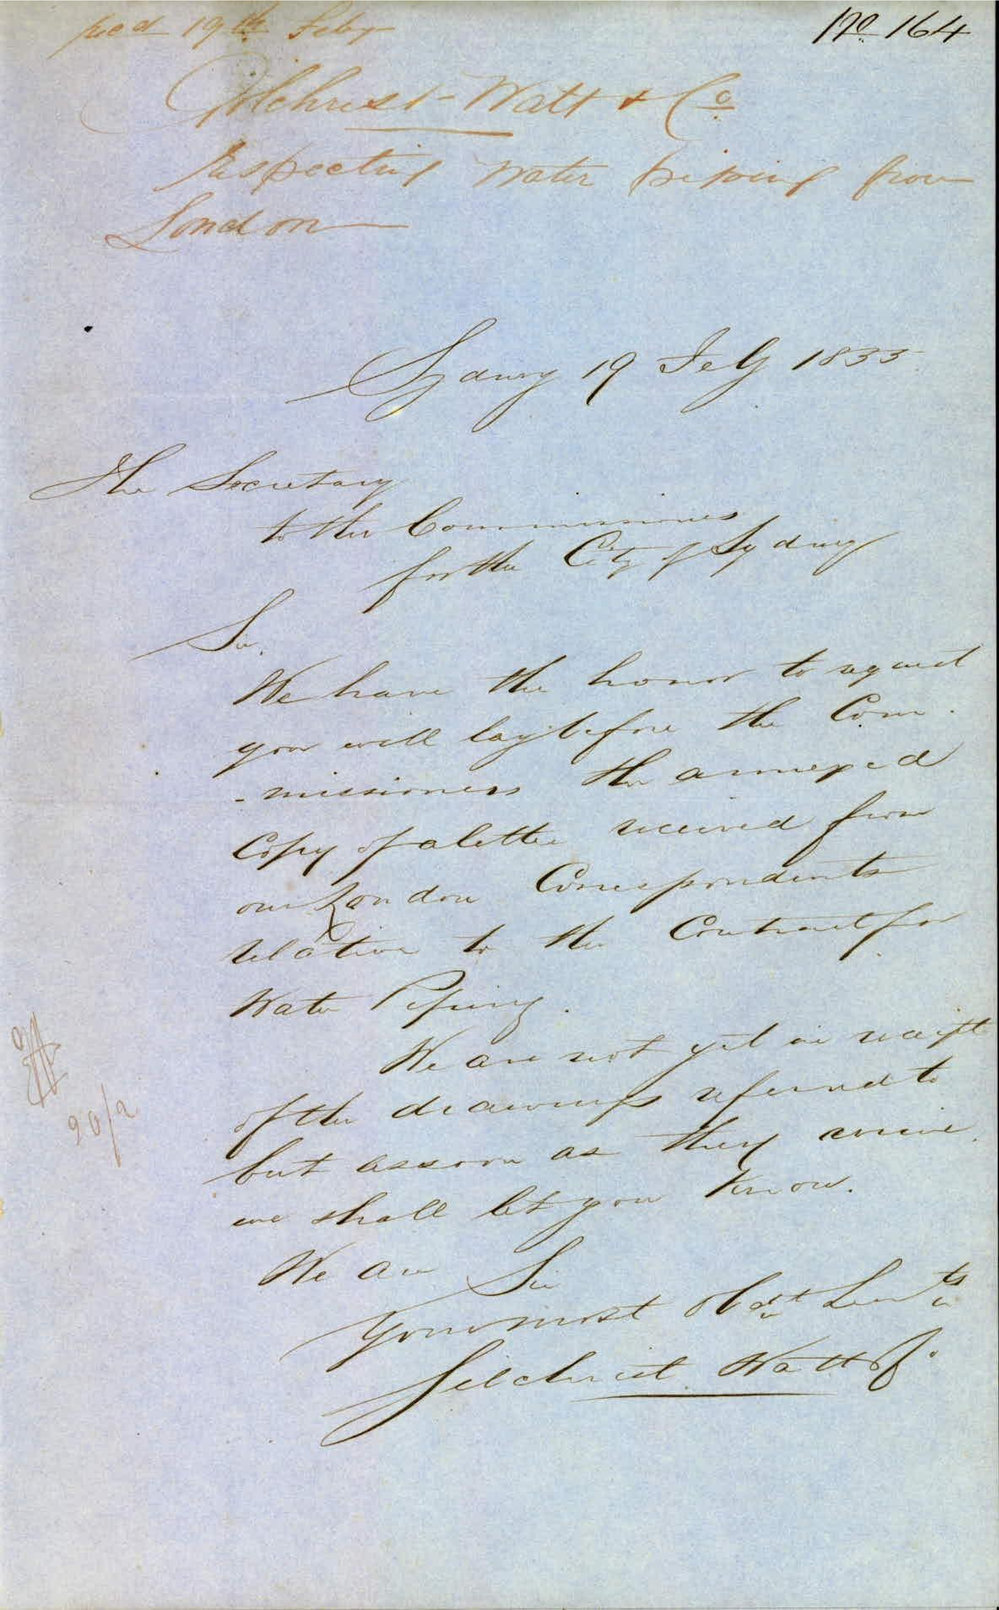 Recd 19th Feby
No 164
Gilchrist Watt & Co
Respecting Water piping from
London
Sydney 19 Feby 1855
The Secretary
to the Commissioners
for the City of Sydney
Sir.
We have the honor to request
you will lay before the Com
-missioners the annexed
Copy of a letter received from
our London Correspondents
relative to the Contract for
Water Piping.
We are not yet in receipt
of the drawings referred to
but as soon as they arrive
we shall let you know.
We are Sir
Your most Obdt Servts
Gilchrist Watt & Co.